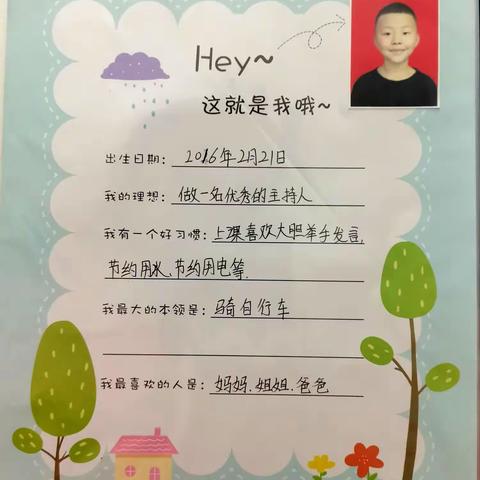 Hey~
这就是我哦~
出生日期：2016年2月21日
我的理想：做一名优秀的主持人
我有一个好习惯：上课喜欢大胆举手发言,
节约用水、节约用电等.
我最大的本领是：骑自行车
我最喜欢的人是：妈妈.姐姐.爸爸